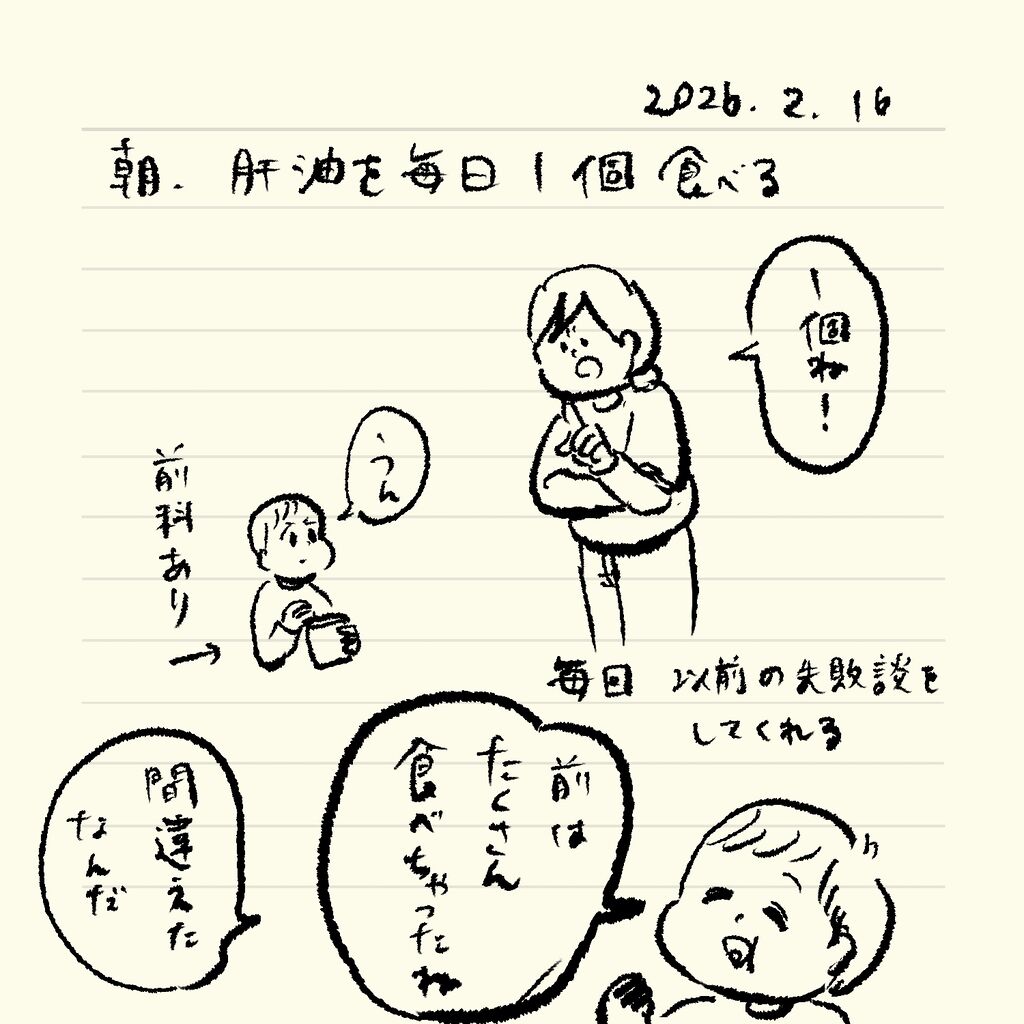 2026.2.16
朝.肝油を毎日1個食べる
1個ね!
うん
前科あり
毎日 以前の失敗談を
してくれる
前は
たくさん
食べちゃったね
間違えた
なんだ